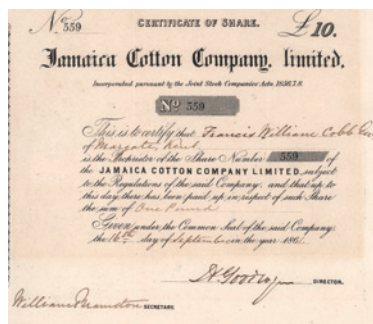 No 559 CERTIFICATE OF SHARE. £10.
Jamaica Cotton Company, limited.
Incorporated pursuant to the Joint Stock Companies' Acts, 1856,7,8.
No 559
This is to certify that Francis William Cobb
of Margate, Kent
is the Proprietor of the Share Number 559 of
the JAMAICA COTTON COMPANY LIMITED, subject
to the Regulations of the said Company; and that up to
this day there has been paid up in respect of such Share
the sum of One Pound
Given under the Common Seal of the said Company,
the 16th day of September in the year 1861.
DIRECTOR.
William SECRETARY.